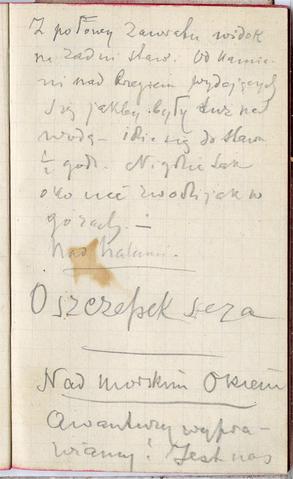 Z połowy Zawratu widok
na zadni staw. Od kamie-
ni nad brzegiem wydających
się jakby były tuż nad
wodą – idzie się do stawu
½ godz. Nigdzie tak
oko nie zwodzi jak w
górach. –
Nad halami.
Oszczepek sera
Nad morskim Okiem
Awantury wypra-
wiamy! Jest nas